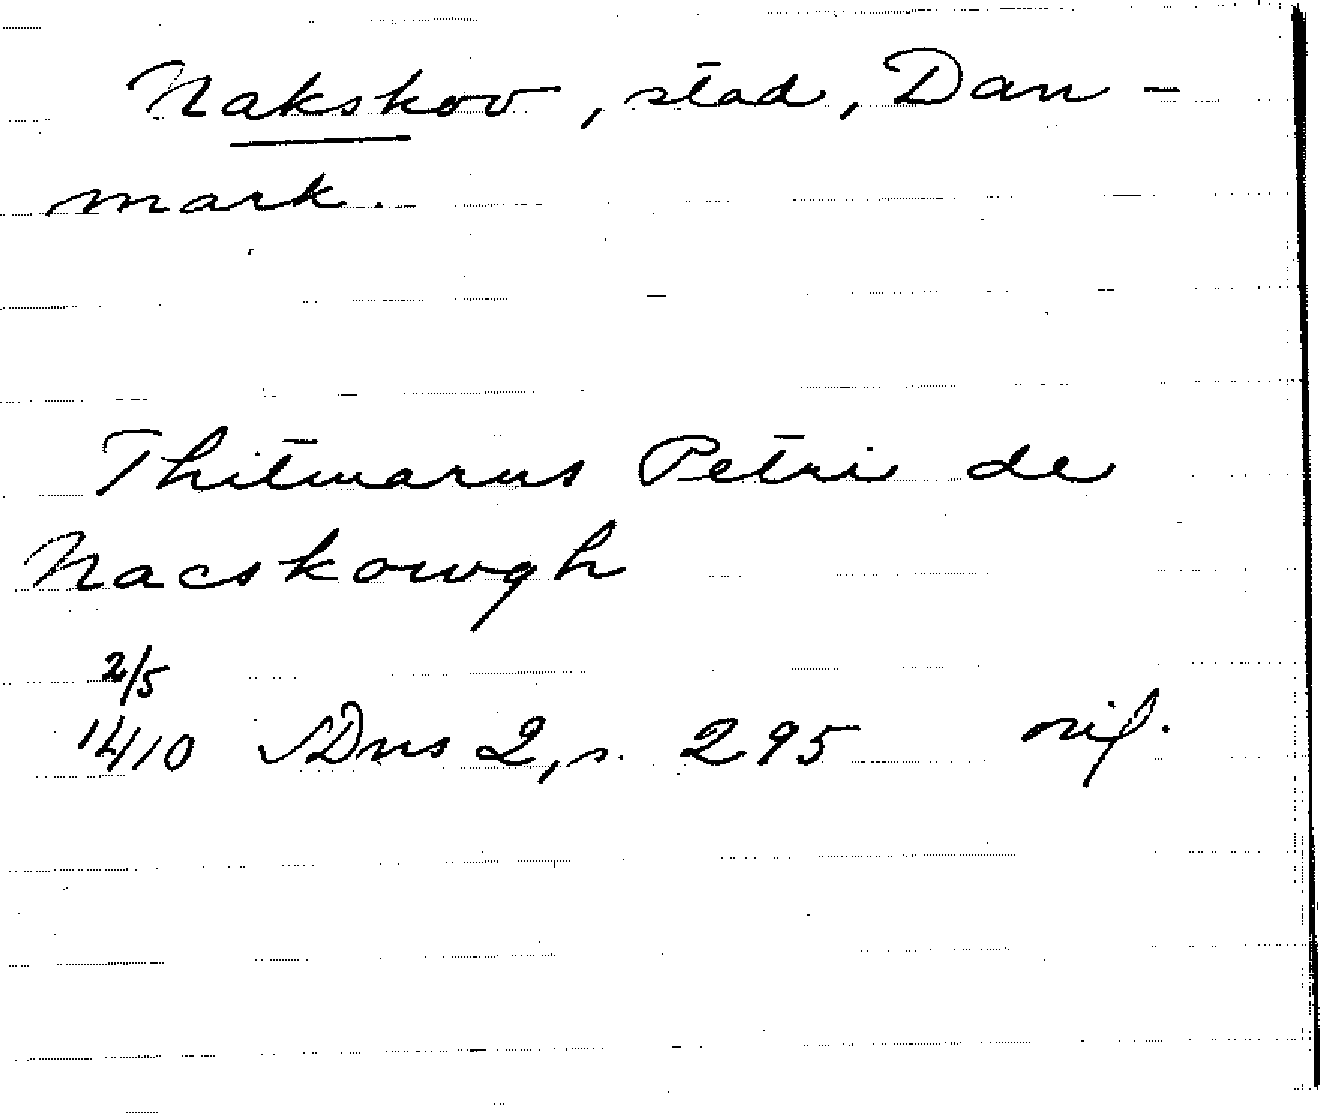 Nakskov, stad, Dan-
mark.
Thitmarus Petri de
Nacskowgh
2/5
1410 SDns 2, s. 295 orig.